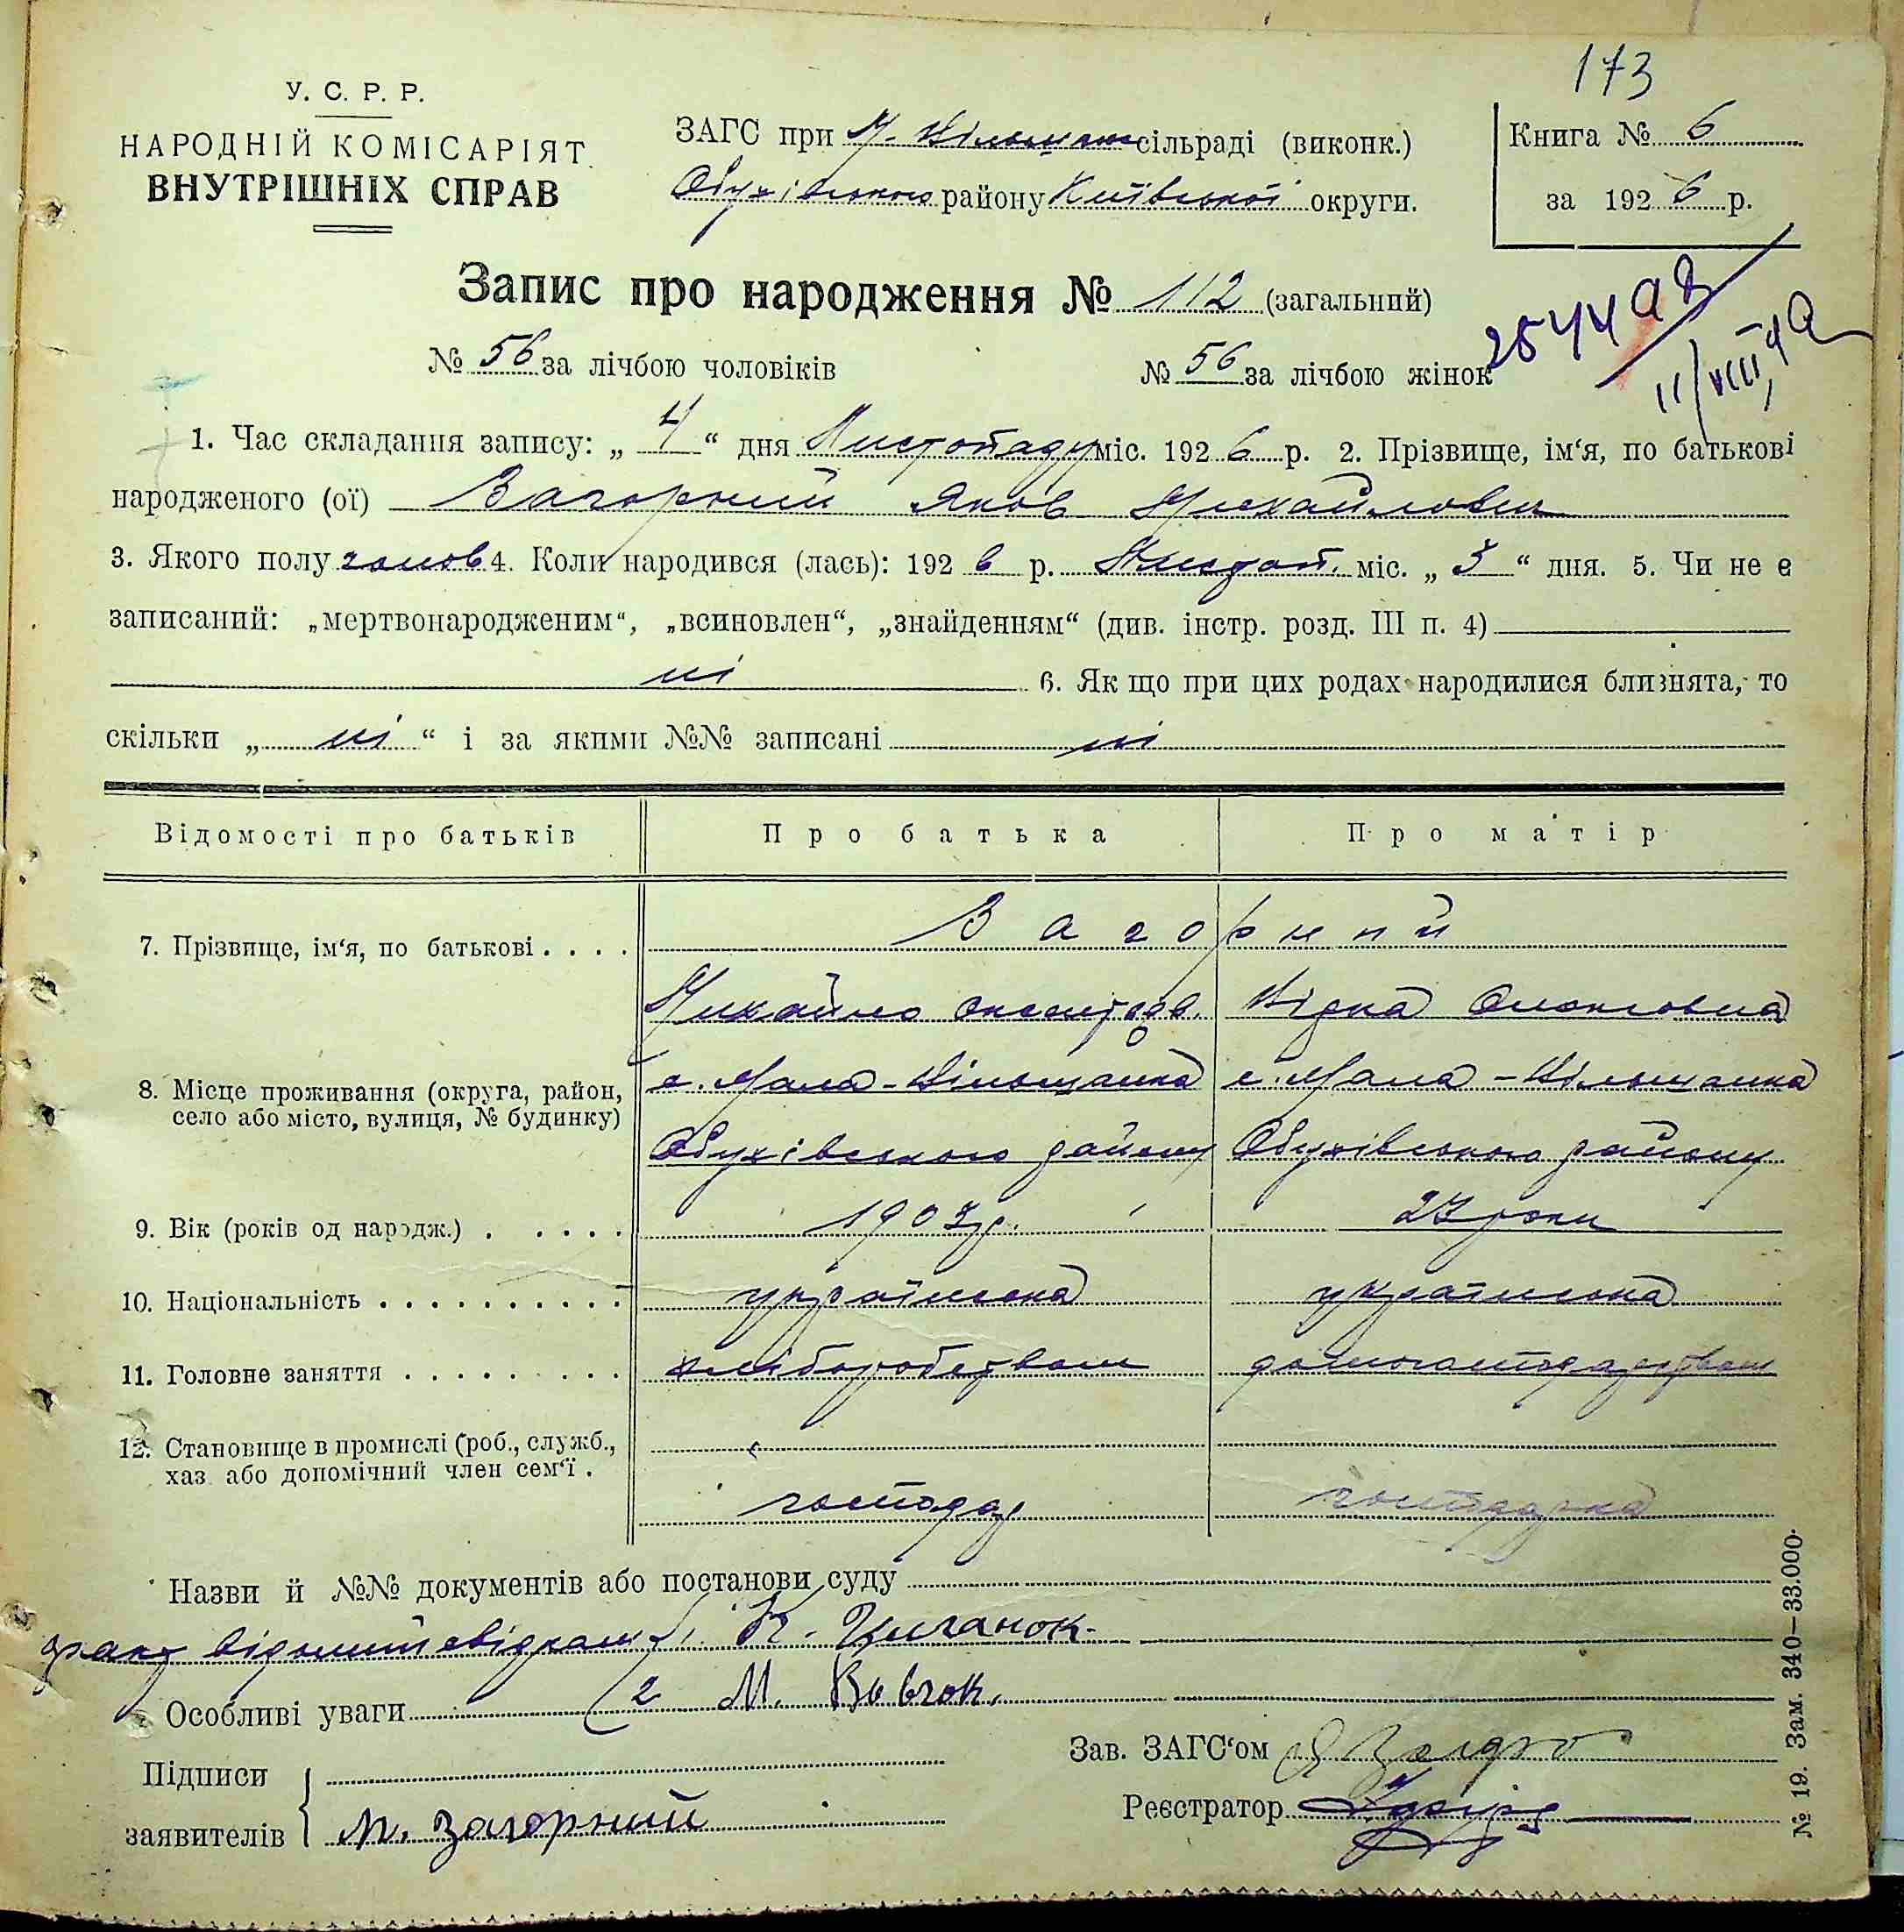 173
У. С. Р. Р.
НАРОДНІЙ КОМІСАРІЯТ
ВНУТРІШНІХ СПРАВ
ЗАГС при М. Вільшан сільраді (виконк.)
Обухівського району Київської округи.
Книга № 6
за 1926 р.
Запис про народження № 112 (загальний)
№ 56 за лічбою чоловіків
№ 56 за лічбою жінок
1. Час складання запису: „ 4 “ дня Листопаду міс. 1926 р. 2. Прізвище, ім‘я, по батькові
народженого (ої) Загорний Яков Михайлович
3. Якого полу чолов 4. Коли народився (лась): 1926 р. Листоп. міс. „ 3 “ дня. 5. Чи не є
записаний: „мертвонародженим“, „всиновлен“, „знайденням“ (див. інстр. розд. III п. 4)
ні 6. Як що при цих родах народилися близнята, то
скільки „ ні “ і за якими №№ записані ні
Відомості про батьків
Про батька
Про матір
7. Прізвище, ім‘я, по батькові . . . .
Загорний
Михайло
8. Місце проживання (округа, район,
село або місто, вулиця, № будинку)
с. Мала-Вільшанка
с. Мала-Вільшанка
Обухівського району
Обухівського району
9. Вік (років од народж.) . . . . .
1903 р.
23 роки
10. Національність . . . . . . . . . .
українська
українська
11. Головне заняття . . . . . . . . .
хліборобством
домогосподарством
12. Становище в промислі (роб., служб.,
хаз. або допомічний член сем‘ї .
господар
господарка
Назви й №№ документів або постанови суду
факт відомий свідкам 1. К. Циганок.
Особливі уваги 2 М. Вовчок.
Підписи
заявителів
М. Загорний
Зав. ЗАГС‘ом
Реєстратор
№ 19. Зам. 340—33.000.